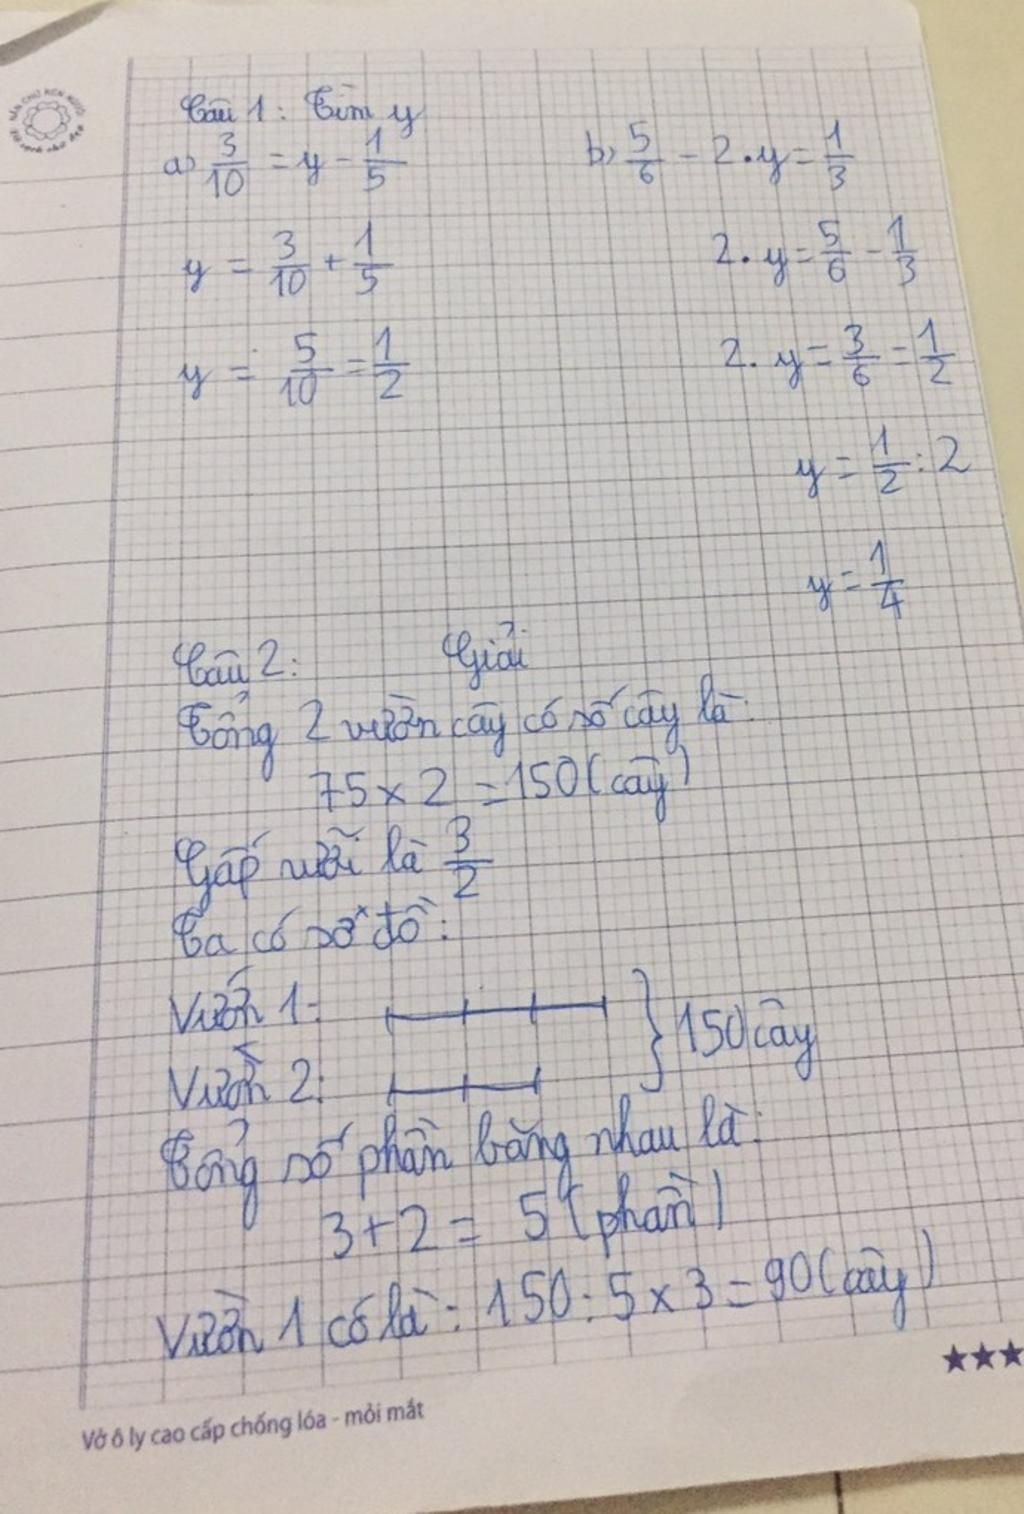 Câu 1: Tìm y
a) 3/10 = y - 1/5
y = 3/10 + 1/5
y = 5/10 = 1/2
b) 5/6 - 2.y = 1/3
2.y = 5/6 - 1/3
2.y = 3/6 = 1/2
y = 1/2 : 2
y = 1/4
Câu 2: Giải
Tổng 2 vườn cây có số cây là:
75 x 2 = 150 (cây)
Gấp rưỡi là 3/2
Ta có sơ đồ:
Vườn 1:
Vườn 2:
150 cây
Tổng số phần bằng nhau là:
3 + 2 = 5 (phần)
Vườn 1 có là: 150 : 5 x 3 = 90 (cây)
★★★
Vở ô ly cao cấp chống lóa - mỏi mắt